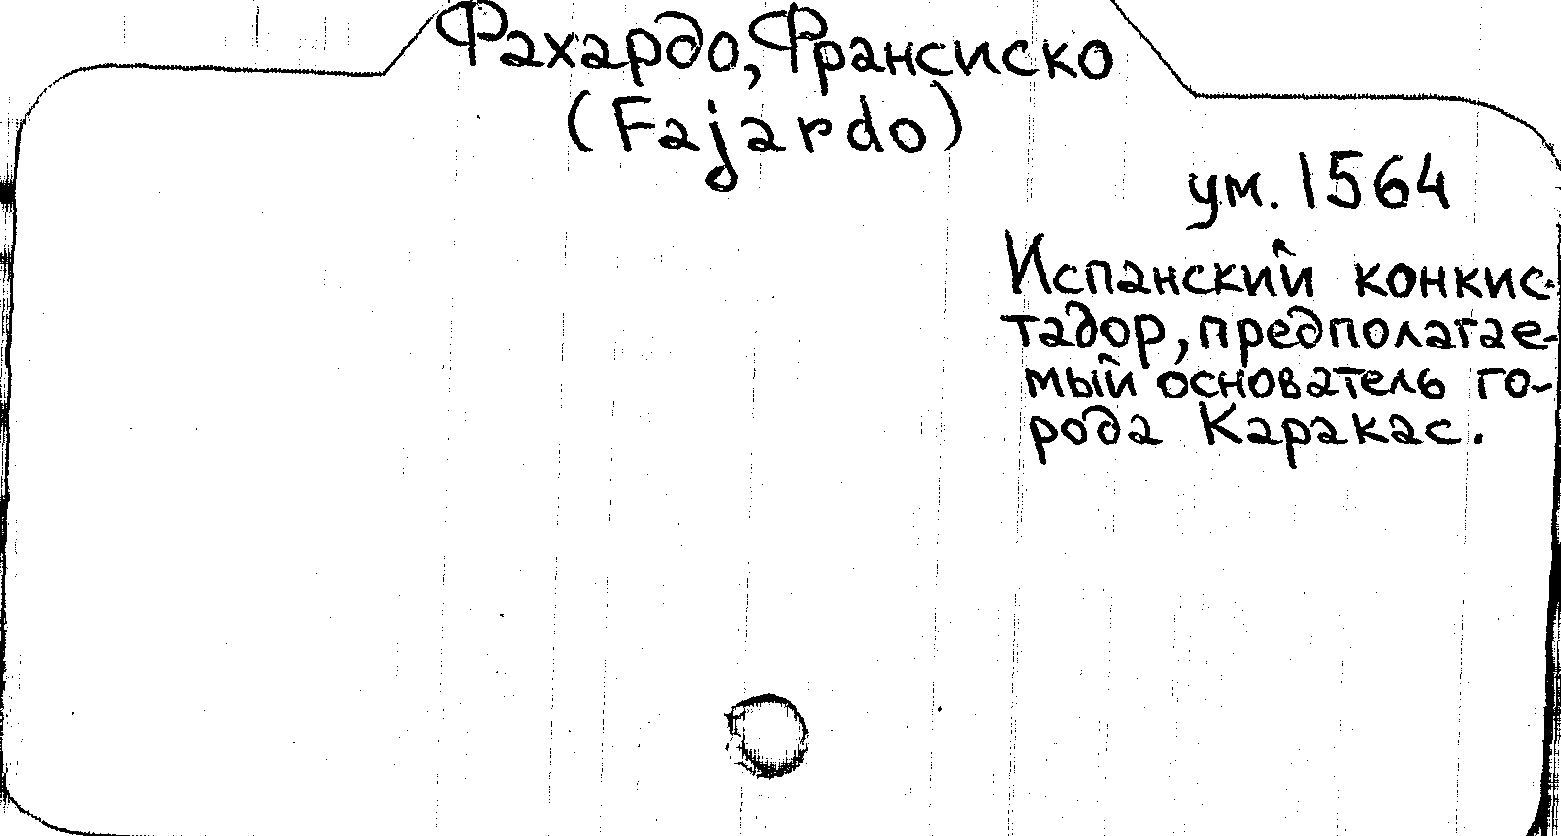 Фахардо, Франсиско
(Fajardo)
ум. 1564
Испанский конкис-
тадор, предполагае-
мый основатель го-
рода Каракас.